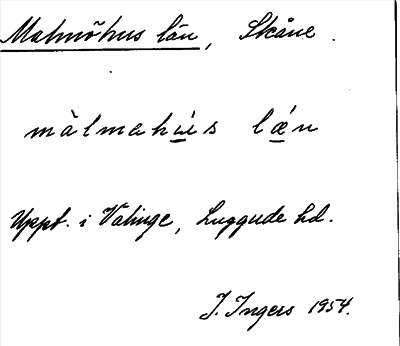 Malmöhus län, Skåne.
màlmahú̲s lǽ̲n
Uppt. i Välinge, Luggude hd.
J. Ingers 1954.